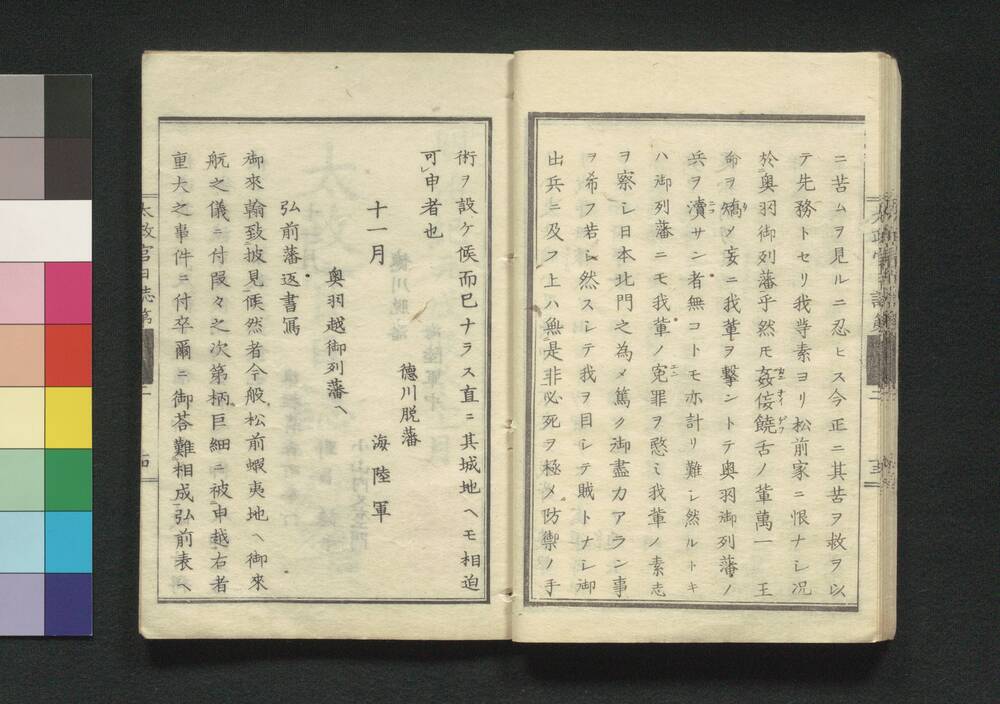 ニ苦ムヲ見ルニ忍ヒス今正ニ其苦ヲ救ヲ以
テ先務トセリ我等素ヨリ松前家ニ恨ナシ况
於奥羽御列藩乎然モ姦侫饒舌ノ輩萬一　王
命ヲ矯メ妄ニ我輩ヲ擊ントテ奥羽御列藩ノ
兵ヲ瀆サン者無コトモ亦計リ難シ然ルトキ
ハ御列藩ニモ我輩ノ寃罪ヲ愍ミ我輩ノ素志
ヲ察シ日本北門之為メ篤ク御盡力アラン事
ヲ希フ若シ然スシテ我ヲ目シテ賊トナシ御
出兵ニ及フ上ハ無是非必死ヲ極メ防禦ノ手
術ヲ設ケ候而已ナラス直ニ其城地ヘモ相迫
可申者也
德川脱藩
十一月　海陸軍
奥羽越御列藩ヘ
弘前藩返書寫
御來翰致披見候然者今般松前蝦夷地ヘ御來
航之儀ニ付段々之次第柄巨細ニ被申越右者
重大之事件ニ付卒爾ニ御荅難相成弘前表ヘ
太政官日誌第